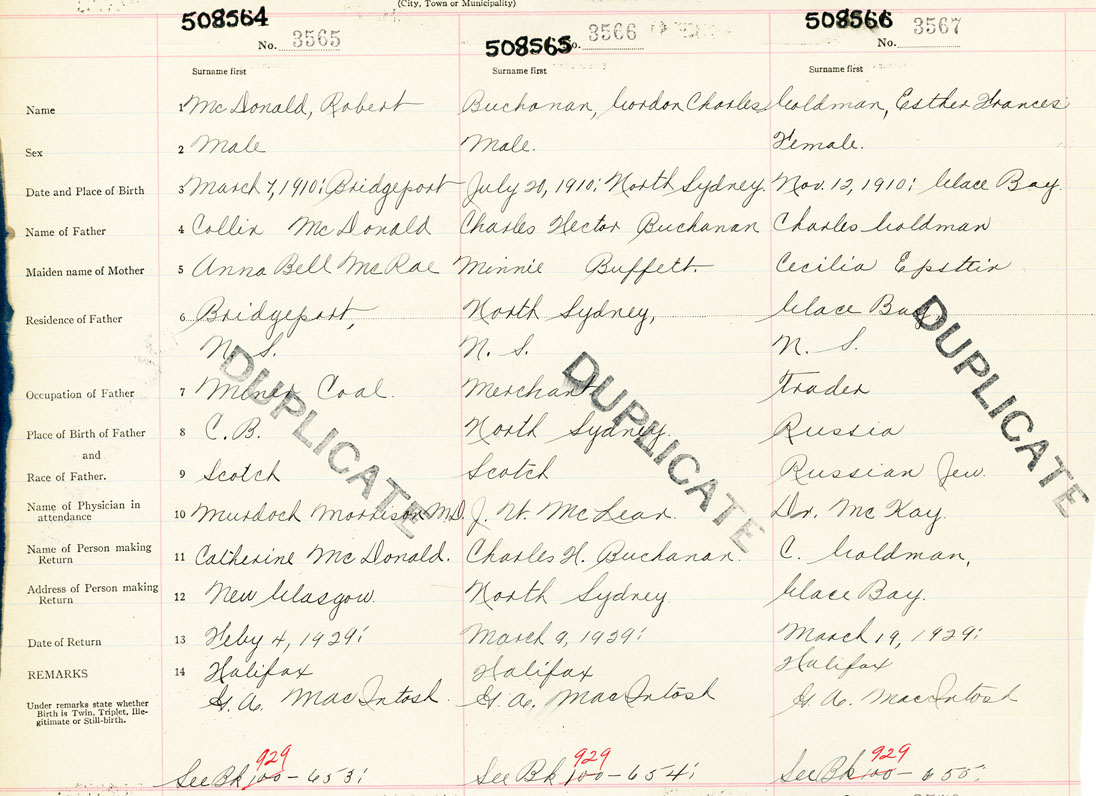 (City, Town or Municipality)
508564 508565 508566
No. 3565 No. 3566 No. 3567
Surname first Surname first Surname first
Name 1 McDonald, Robert Buchanan, Gordon Charles Goldman, Esther Frances
Sex 2 Male Male. Female.
Date and Place of Birth 3 March 7, 1910; Bridgeport July 20, 1910; North Sydney. Nov. 12, 1910; Glace Bay.
Name of Father 4 Collin McDonald Charles Hector Buchanan Charles Goldman
Maiden name of Mother 5 Anna Bell McRae Minnie Buffett. Cecilia Epstein
Residence of Father 6 Bridgeport, North Sydney, Glace Bay,
N. S. N. S. N. S.
Occupation of Father 7 Miner Coal. Merchant Trader
Place of Birth of Father 8 C. B. North Sydney. Russia
and
Race of Father. 9 Scotch Scotch Russian Jew.
Name of Physician in
attendance 10 Murdoch Morrison M.D. J. W. McLean. Dr. McKay.
Name of Person making
Return 11 Catherine McDonald. Charles H. Buchanan. C. Goldman,
Address of Person making
Return 12 New Glasgow. North Sydney Glace Bay.
Date of Return 13 Feby 4, 1929; March 9, 1929; March 19, 1929;
REMARKS 14 Halifax Halifax Halifax
Under remarks state whether
Birth is Twin, Triplet, Ille-
gitimate or Still-birth.
G. A. MacIntosh G. A. MacIntosh G. A. MacIntosh
DUPLICATE DUPLICATE DUPLICATE
929 929 929
See Bk 100 - 653; See Bk 100 - 654; See Bk 100 - 655;